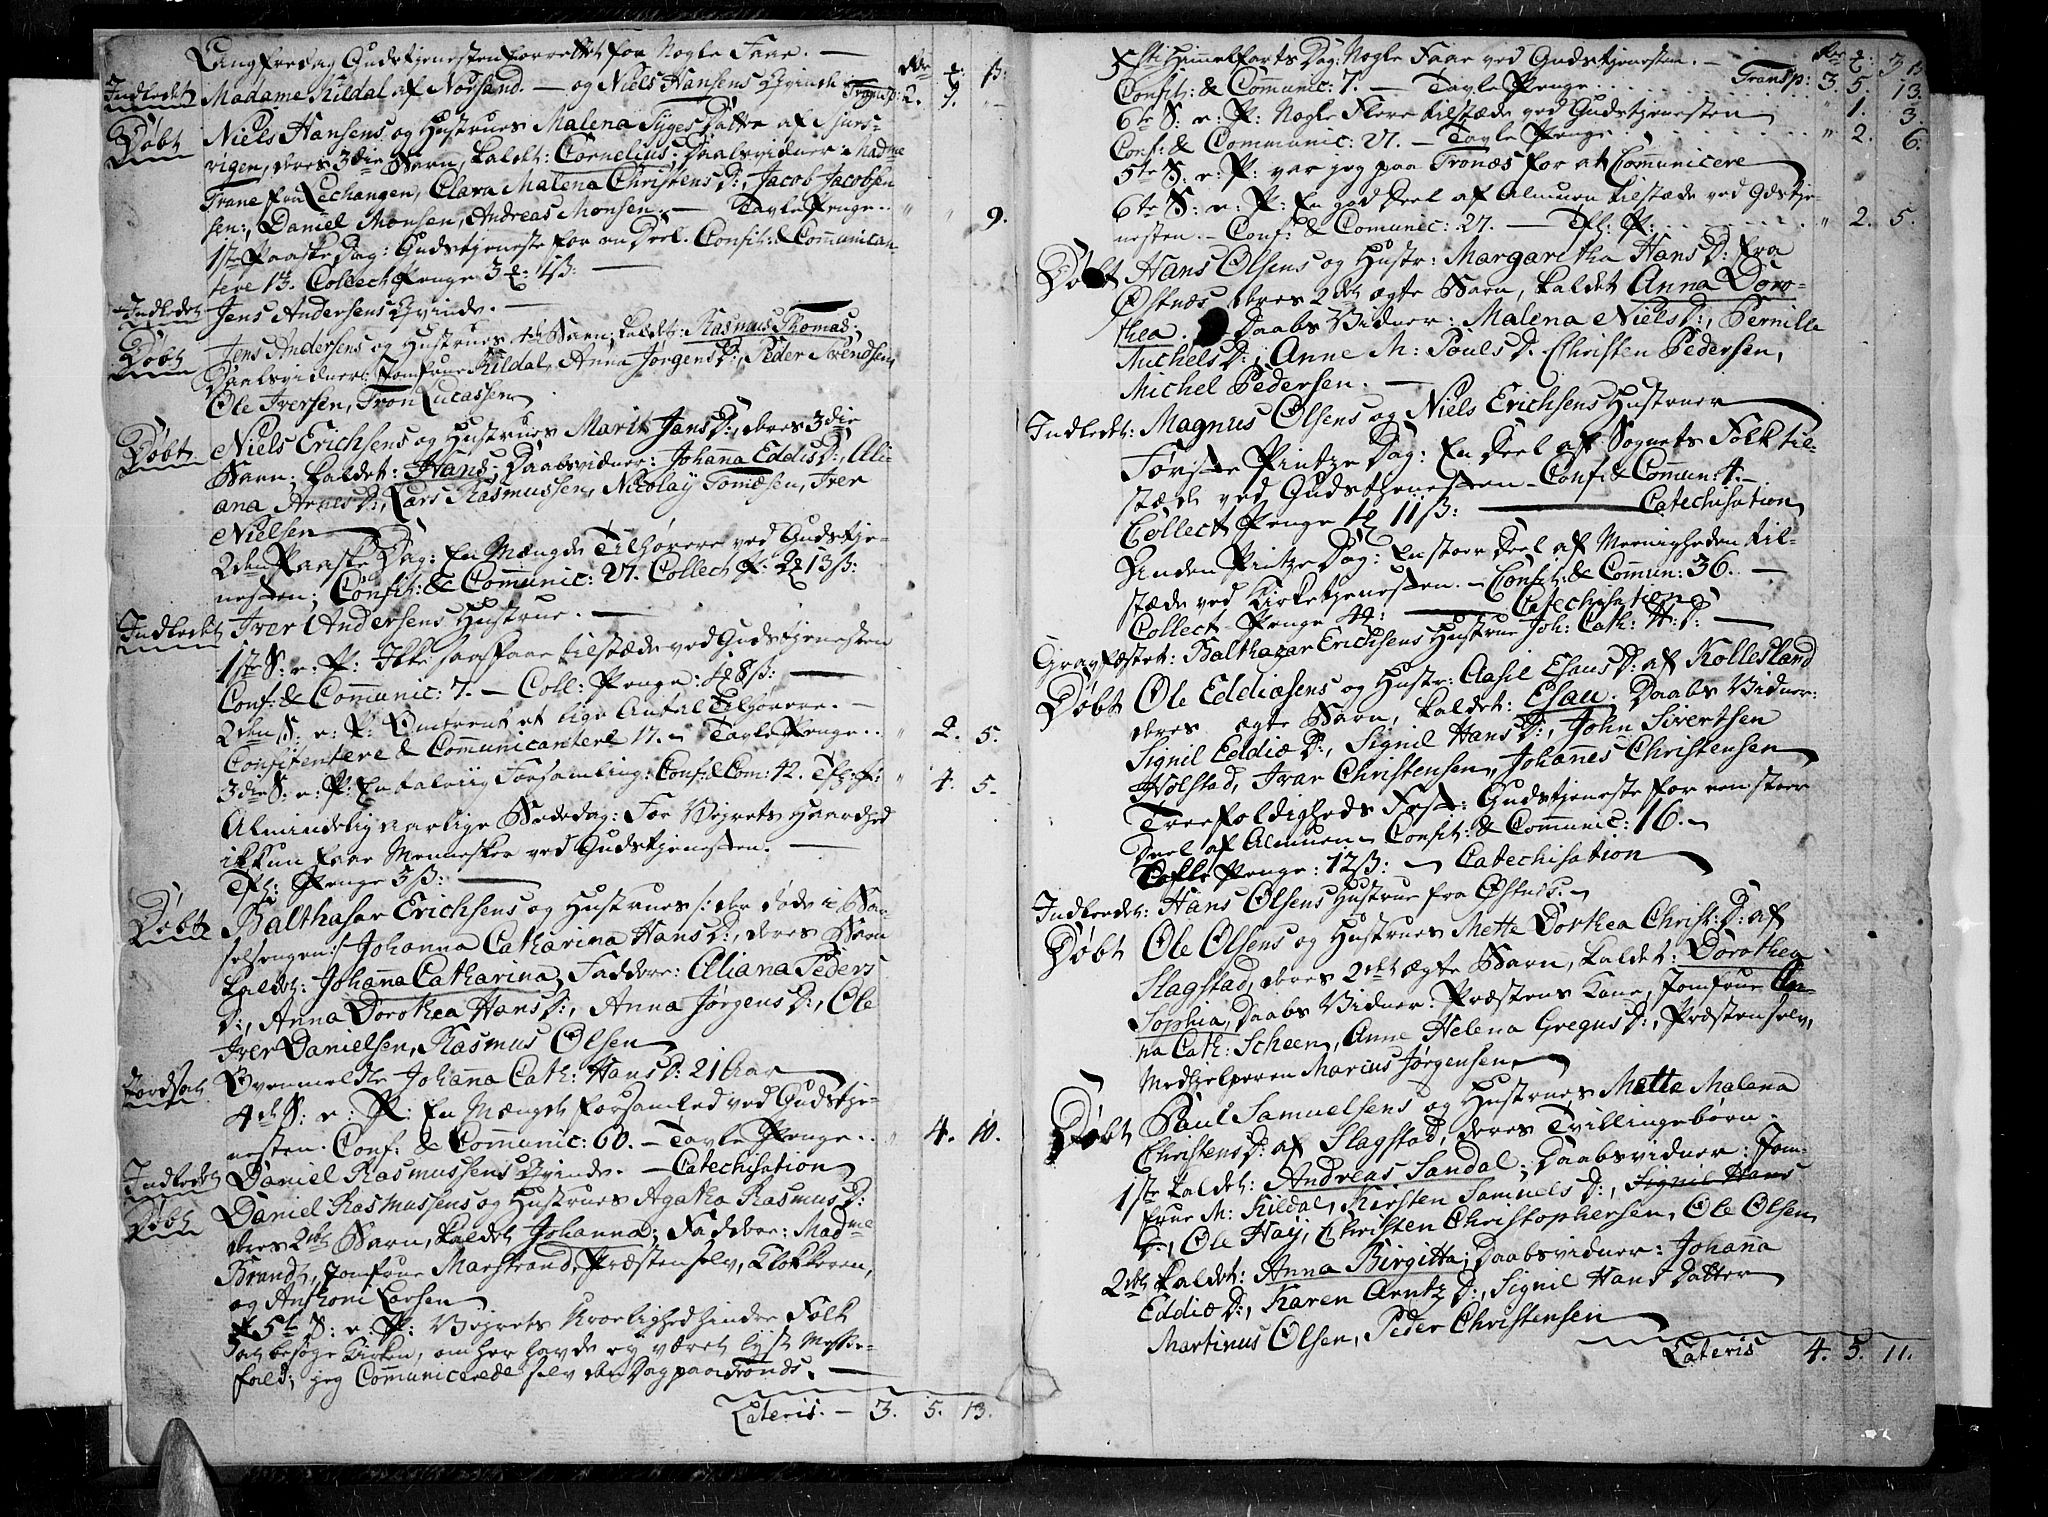 Langfredag Gudstjenesten forrettet for Nogle Faae. —
Rdr ℔: ß:
Indledet Madame Kildal af Nørsand. — og Niels Hansens Qvinde Transp: 2. 7. "
Døbt Niels Hansens og Hustrues Malena Tyges Datter af
vigen, deres 3die Barn, kaldet: Cornelius; Daabsvidner: Madme
Trane fra Lechangen, Clara Malena Christens D:, Jacob Jacobsen
sen:, Daniel Monsen, Andreas Monsen. — Tavle Penge.. " " 9.
1ste Paaske Dag: Gudstjeneste for en Deel. Confit: & Communican-
tere 13. Collect Penge 3 ℔: 4ß: —
Indledet Jens Andersens Qvinde. —
Døbt Jens Andersens og Hustrues 4de Barn; kaldet: Rasmus Thomas;
Daabsvidner: Jomfrue Kildal, Anna Jørgens D:, Peder Svendsen,
Ole Iversen, Tron Lucassen
Døbt Niels Erichsens og Hustrues Marit Jans D:, deres 3die
Barn; kaldet: Hans; Daabsvidner: Johanna Eddis D:, Eli-
ana Arnes D:, Lars Rasmussen, Nicolay Tomæsen, Iver
Nielsen
2den Paaske Dag: En Mængde Tilhørere ved Gudstje-
nesten; Confit: & Communic: 27. Collect P: 2 ℔ 13ß:
Indledet Iver Andersens Hustrue. —
1ste S: e: P: Ikke saa faae tilstæde ved Gudstjenesten
Conf: & Communic: 7. — Coll: Penge: 1 ℔ 8ß: —
2den S: e: P: Omtrent et lige Antal Tilhørere. —
Confitentere & Communicantere 17. — Tavle Penge.. " 2. 5.
3die S: e: P: En talriig Forsamling: Conf: & Com: 42. Tfl: P: " 4. 5.
Almindelig aarlige Bededag: For Vejrets Haardhed
ikkun faae Mennesker ved Gudstjenesten. —
Tfl: Penge 3ß: —
Døbt Balthasar Erichsens og Hustrues /: der døde i Bar-
selsengen :/ Johanna Catharina Hans D:, deres Barn
kaldet: Johanna Catharina, Faddere: Eliana Peders
D:, Anna Dorothea Hans D:, Anna Jørgens D:, Ole
Iver Danielsen, Rasmus Olsen
Jordsat Ovenmeldte Johanna Cath: Hans D: 21 Aar
4de S: e: P: En Mængde forsamled ved Gudstje-
nesten. Conf: & Communic: 60. — Tavle Penge.. " 4. 10.
Indledet Daniel Rasmussens Qvinde. — Catechisation
Døbt Daniel Rasmussens og Hustrues Agatha Rasmus D:
deres 2det Barn, kaldet Johanna; Faddere: Madme
Brandt, Jomfrue Marstrand, Præsten selv, Klokkeren,
og Anthoni Larsen
5te S: e: P: Vejrets Uroelighed hindre Folk
at besøge Kirken, om her havde ej været lyst Messe-
fald; jeg Communicerede selv den Dag paa Trondæs. —
Lateris. — 3. 5. 13.
Chsti Himmelfarts Dag: Nogle Faae ved Gudstjenesten. — Rdr ℔: ß
Confit: & Communic: 7. — Tavle Penge Transp: 3. 5. 13.
6te S: e: P: Nogle Flere tilstæde ved Gudstjenesten " 1. 3.
Conf: & Communic: 27. — Tavle Penge " 2. 6.
5te S: e: P: var jeg paa Tronæs for at Comunicere
6te S: e: P: En god Deel af Almuen tilstæde ved Gdstje-
nesten. — Conf: & Comunic: 27. — Tfl: P: " 2. 5.
Døbt Hans Olsens og Hustr: Margaritha Hans D: fra
Østnæs, deres 2det ægte Barn, kaldet Anna Doro-
thea. Daabs Vidner: Malena Niels D:, Pernille
Michels D:, Anne M: Pouls D. Christen Pedersen,
Michel Pedersen. —
Indledet: Magnus Olsens og Niels Erichsens Hustruer
Første Pintze Dag: En Deel af Sognets Folk til-
stæde ved Gudstjenesten — Conf: & Commun: 4. —
Collect Penge 1 ℔ 11ß: — Catechisation
Anden Pintze Dag: En stoer Deel af Meenigheden til-
stæde ved Kirketjenesten. — Confit: & Commun: 36. —
Collect Penge 4 ℔: — Catechisation
Gravfæstet: Balthazar Erichsens Hustrue Joh: Cath: H: D: —
Døbt Ole Eddiæsens og Hustr: Aasil Esaus D: af Rollesland
deres ægte Barn, kaldet: Esau. Daabs Vidner:
Signil Eddiæ D:, Signil Hans D:, John Sivertsen
Holstad, Ivar Christensen, Johannes Christensen
Treefoldigheds Fest: Gudstjeneste for een stoer
Deel af Almuen — Confit: & Communic: 16. —
Tafle Penge: 12ß: — Catechisation
Indledet: Hans Olsens Hustrue fra Østnæs. —
Døbt Ole Olsens og Hustrues Mette Dorthea Christ: D: af
Slagstad, deres 2det ægte Barn, kaldet: Dorothea
Sophia, Daabs Vidner: Præstens Kone, Jomfrue An-
na Cath: Scheen, Anne Helena Gregus D:, Præsten selv,
Medhjelperen Marius Jørgensen
Døbt Paul Samuelsens og Hustrues Mette Malena
Christens D: af Slagstad, deres Tvillingebørn.
1ste kaldet: Andreas Sandal; Daabsvidner: Jom-
frue M: Kildal, Kirsten Samuels D:, Signil Hans
D:, Ole Høy, Christen Christophersen, Ole Olsen
2det kaldet: Anna Birgitta; Daabsvidner: Johanna
Eddiæ D:, Karen Arntz D:, Signil Hans Datter
Martinus Olsen, Peder Christensen
Lateris 4. 5. 11.